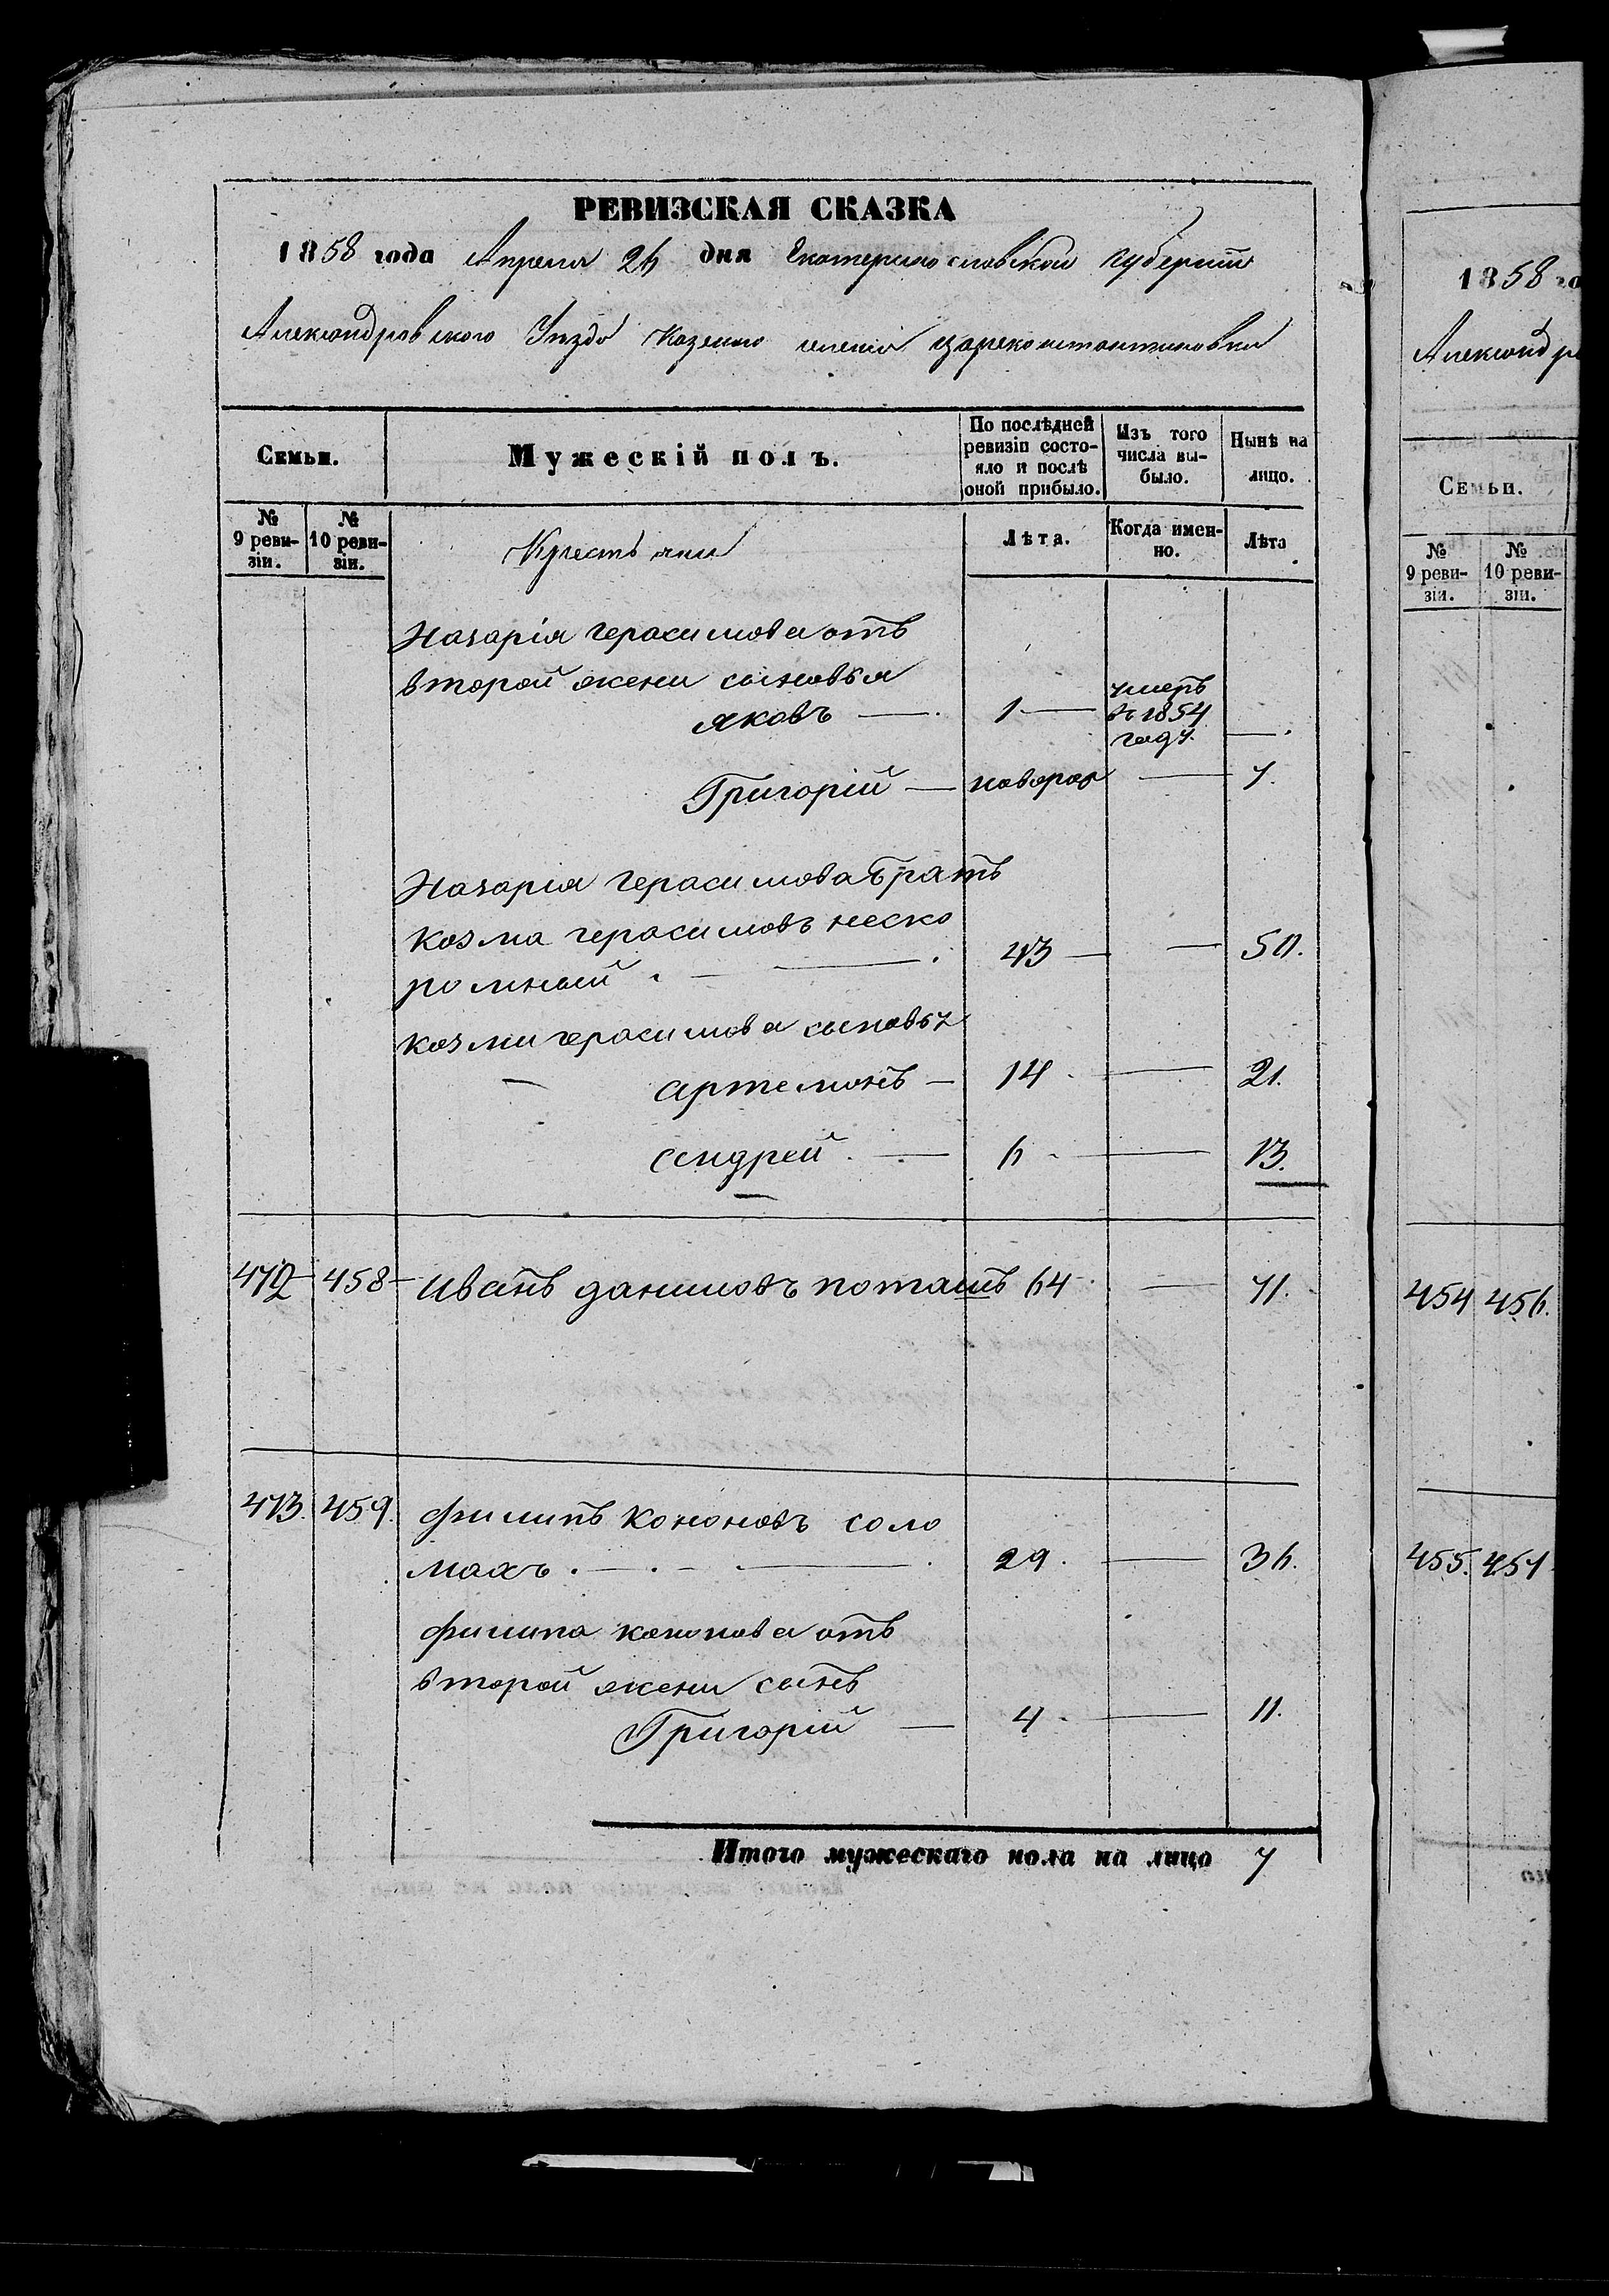 РЕВИЗСКАЯ СКАЗКА
1858 года Апреля 26 дня Екатеринославской губернии
Александровского Уезда Казенно селенія Цареконстантиновки
Семьи.
Мужескій полъ.
По послѣдней ревизіи состояло и послѣ оной прибыло.
Изъ того числа выбыло.
Нынѣ на лицо.
№ 9 ревизіи.
№ 10 ревизіи.
Крестьяни
Лѣта.
Когда именно.
Лѣта
Назарія герасимова отъ
второй жени сыновья
яковъ — 1 — умеръ въ 1854 году. —
Григорій — новорож — 7.
Назарія герасимова братъ
козма герасимовъ неско
ромный . — 43 — — 50.
козми герасимова сыновья
артемонъ — 14 — 21.
андрей — 6 — 13.
472 458 Иванъ даниловъ поташъ 64 — 71.
473. 459. филипъ кононовъ соло
махъ . — 29. — 36.
филипа кононова отъ
второй жени сынъ
Григорій — 4 — 11.
Итого мужескаго пола на лицо 7
1858 го
Александр
Семьи.
№ 9 ревизіи.
№ 10 ревизіи.
454 456.
455. 457